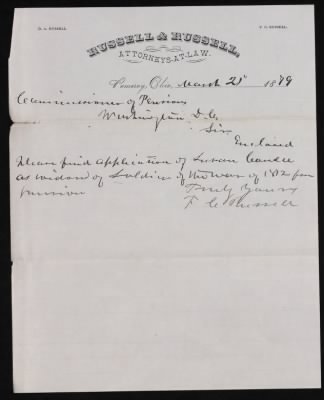 D. A. RUSSELL. F. C. RUSSELL.
RUSSELL & RUSSELL,
ATTORNEYS-AT-LAW.
Pomeroy, Ohio, March 25 1879
Commissioner of Pensions
Washington D.C.
Sir
Enclosed
Please find application of Susan
as widow of Soldier of the war of 1812 for
pension
Truly Yours
F C Russell